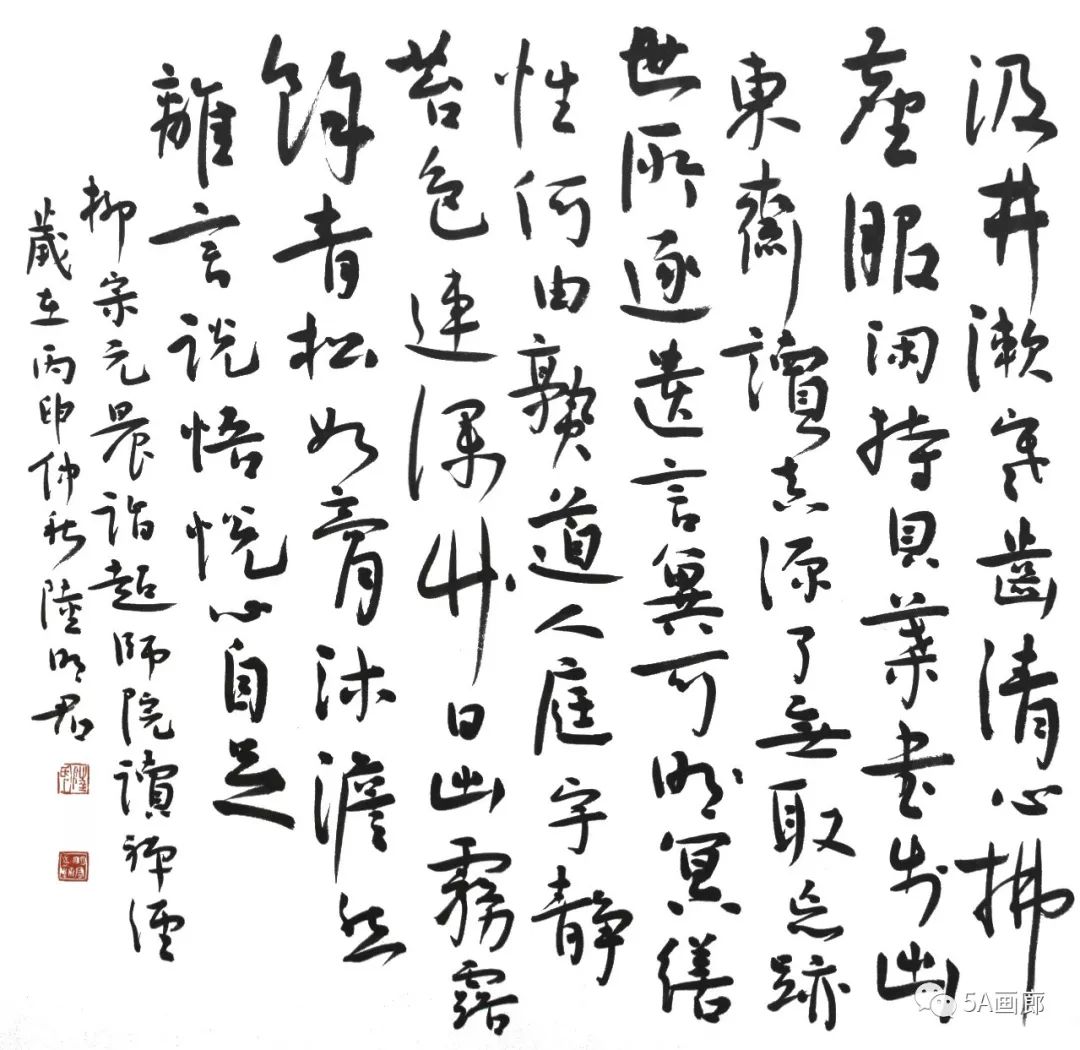 汲井漱寒齒清心拂
塵服闲持貝葉書步出
東齋讀真源了無取妄跡
世所逐遺言冀可明冥繕
性何由熟道人庭宇静
苔色連深竹日出霧露
餘青松如膏沐澹然
離言説悟悦心自足
柳宗元晨詣超師院讀禪經
歲在丙申仲秋陸明君
5A画廊